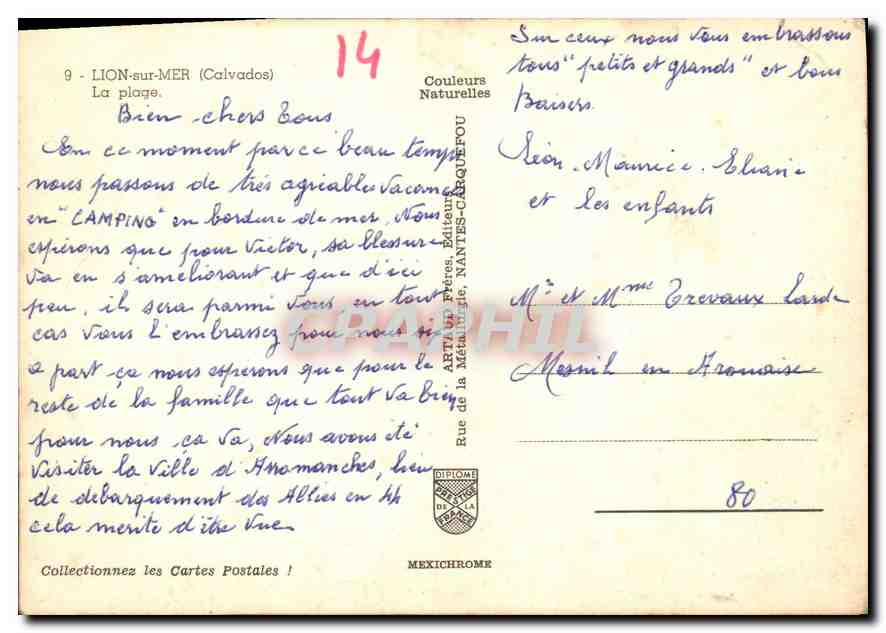 9 - LION-sur-MER (Calvados)
La plage.
14
Couleurs
Naturelles
Bien chers Tous
En ce moment par ce beau temps
nous passons de très agréables vacances
en "CAMPING" en bordure de mer. Nous
espérons que pour Victor, sa blessure
va en s'améliorant et que d'ici
peu, il sera parmi vous en tout
cas vous l'embrassez pour nous
a part ça nous espérons que pour le
reste de la famille que tout va bien
pour nous ça va, Nous avons été
visiter la ville d'Arromanches, lieu
de debarquement des Alliés en 44
cela merite d'être vue
Collectionnez les Cartes Postales !
ARTAUD Frères, Editeurs
Rue de la Métallurgie, NANTES-CARQUEFOU
DIPLOME
PRESTIGE
DE LA
FRANCE
MEXICHROME
Sur ceux nous vous embrassons
tous "petits et grands" et bons
Baisers
Léon. Maurice. Eliane
et les enfants
Mr et Mme Trevaux
Mesnil en Arouaise
80
CPAPHIL